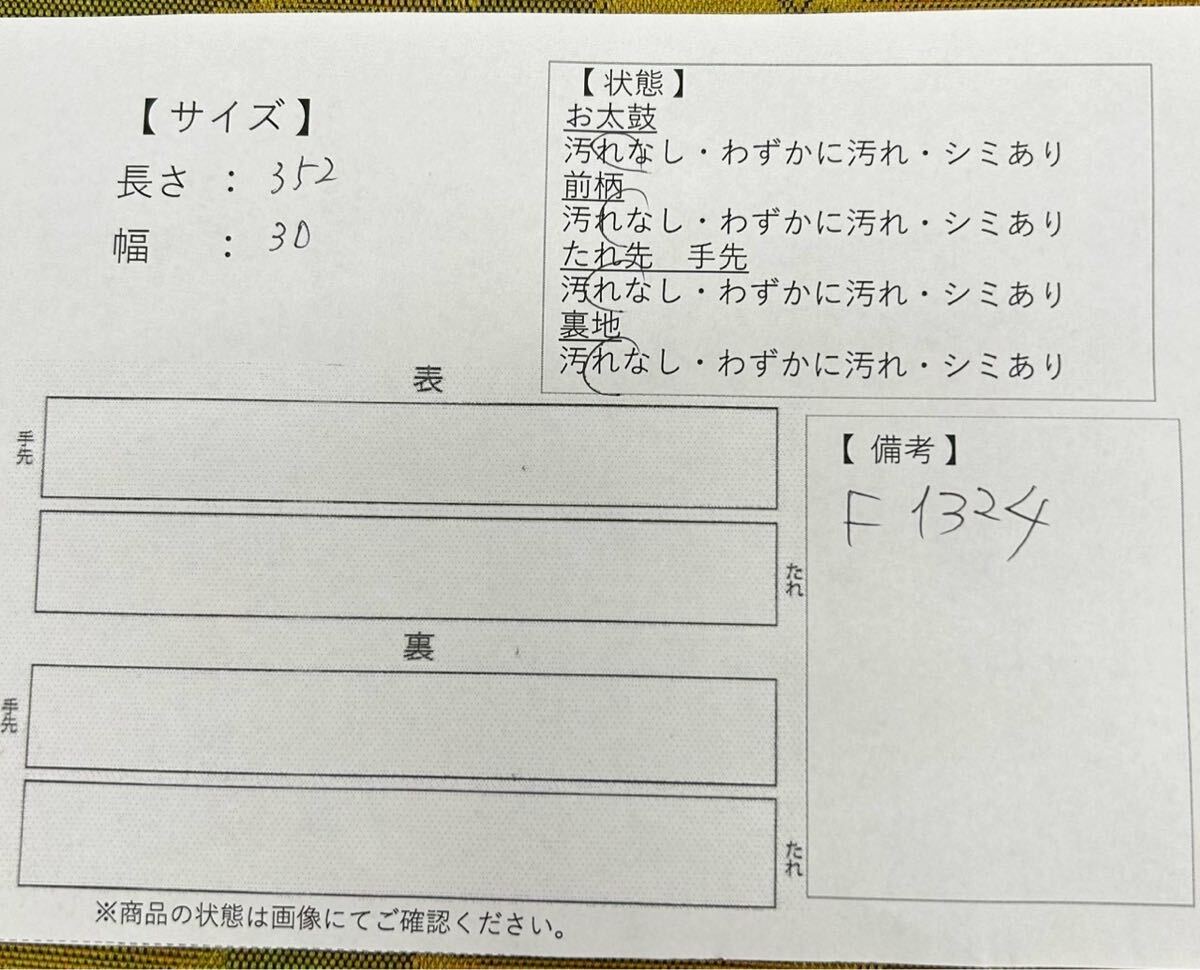 【 サイズ 】
長さ ： 352
幅 ： 30
【 状態 】
お太鼓
汚れなし・わずかに汚れ・シミあり
前柄
汚れなし・わずかに汚れ・シミあり
たれ先 手先
汚れなし・わずかに汚れ・シミあり
裏地
汚れなし・わずかに汚れ・シミあり
表
手先
たれ
裏
手先
たれ
【 備考 】
F 1324
※商品の状態は画像にてご確認ください。